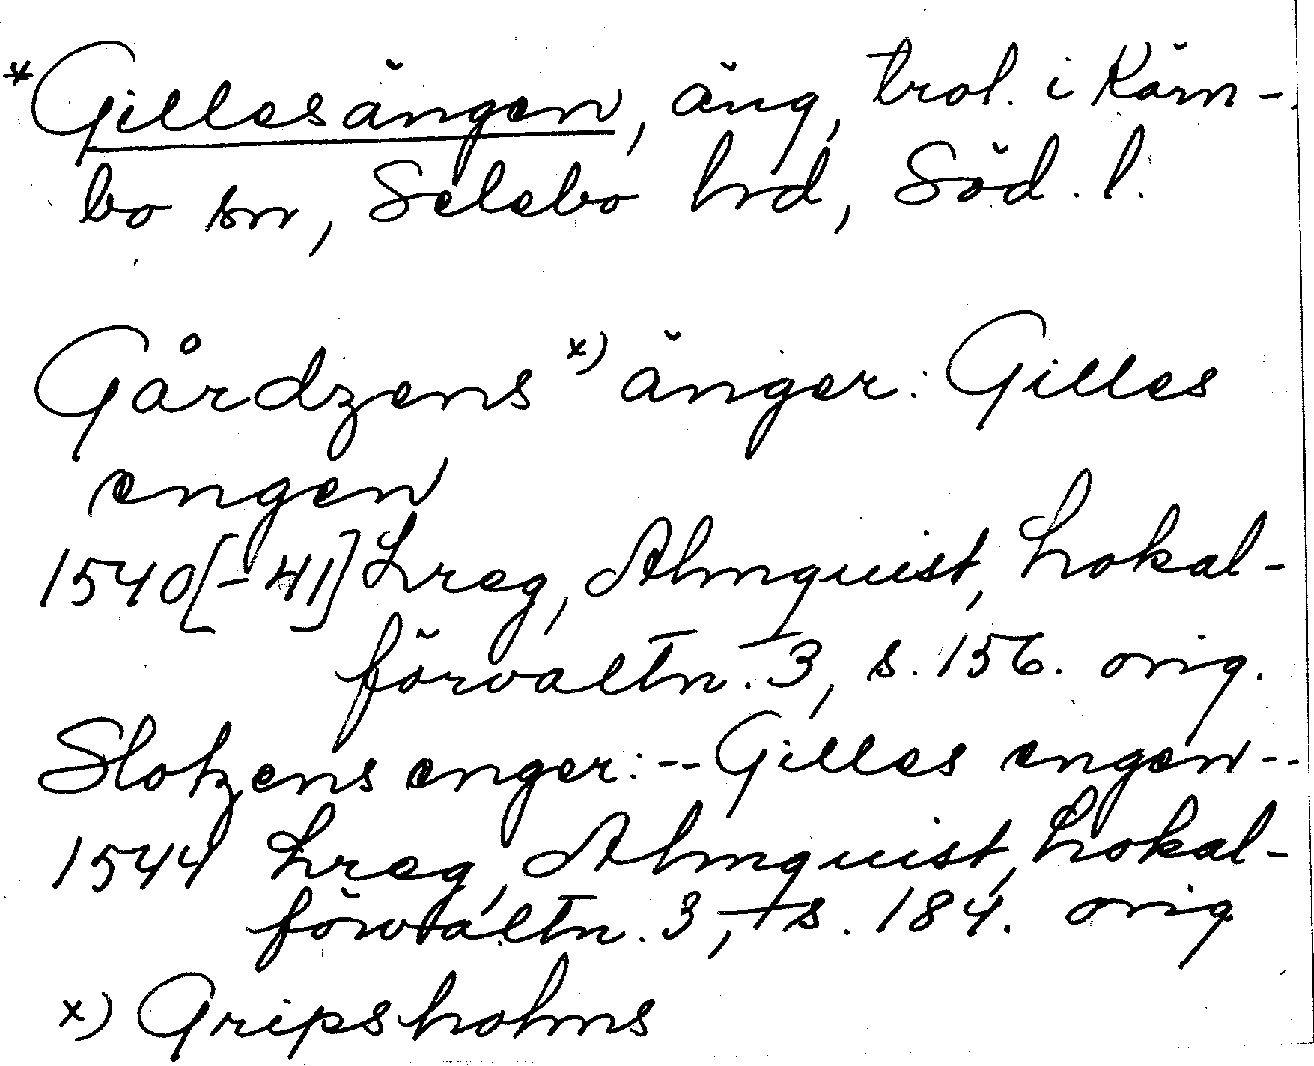 *Gillesängen, äng, trol. i Kärn-
bo sn, Selebo hrd, Söd. l.
Gårdzens x) änger: Gilles
engen
1540[-41] Lreg, Almquist, Lokal-
förvaltn. 3, s. 156. orig.
Slotzens enger: -- Gilles engen --
1544 Lreg, Almquist, Lokal-
förvaltn. 3, s. 184. orig
x) Gripsholms